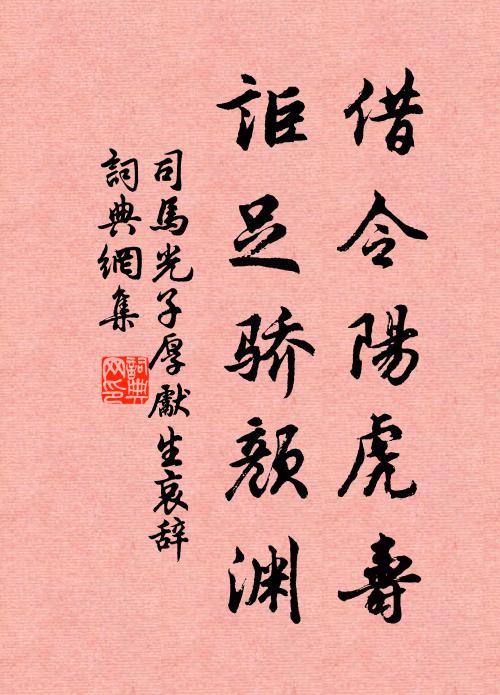 借令陽虎壽
詎足骄颜渊
司馬光子厚獻生哀辞
詞典網集
詞典网印